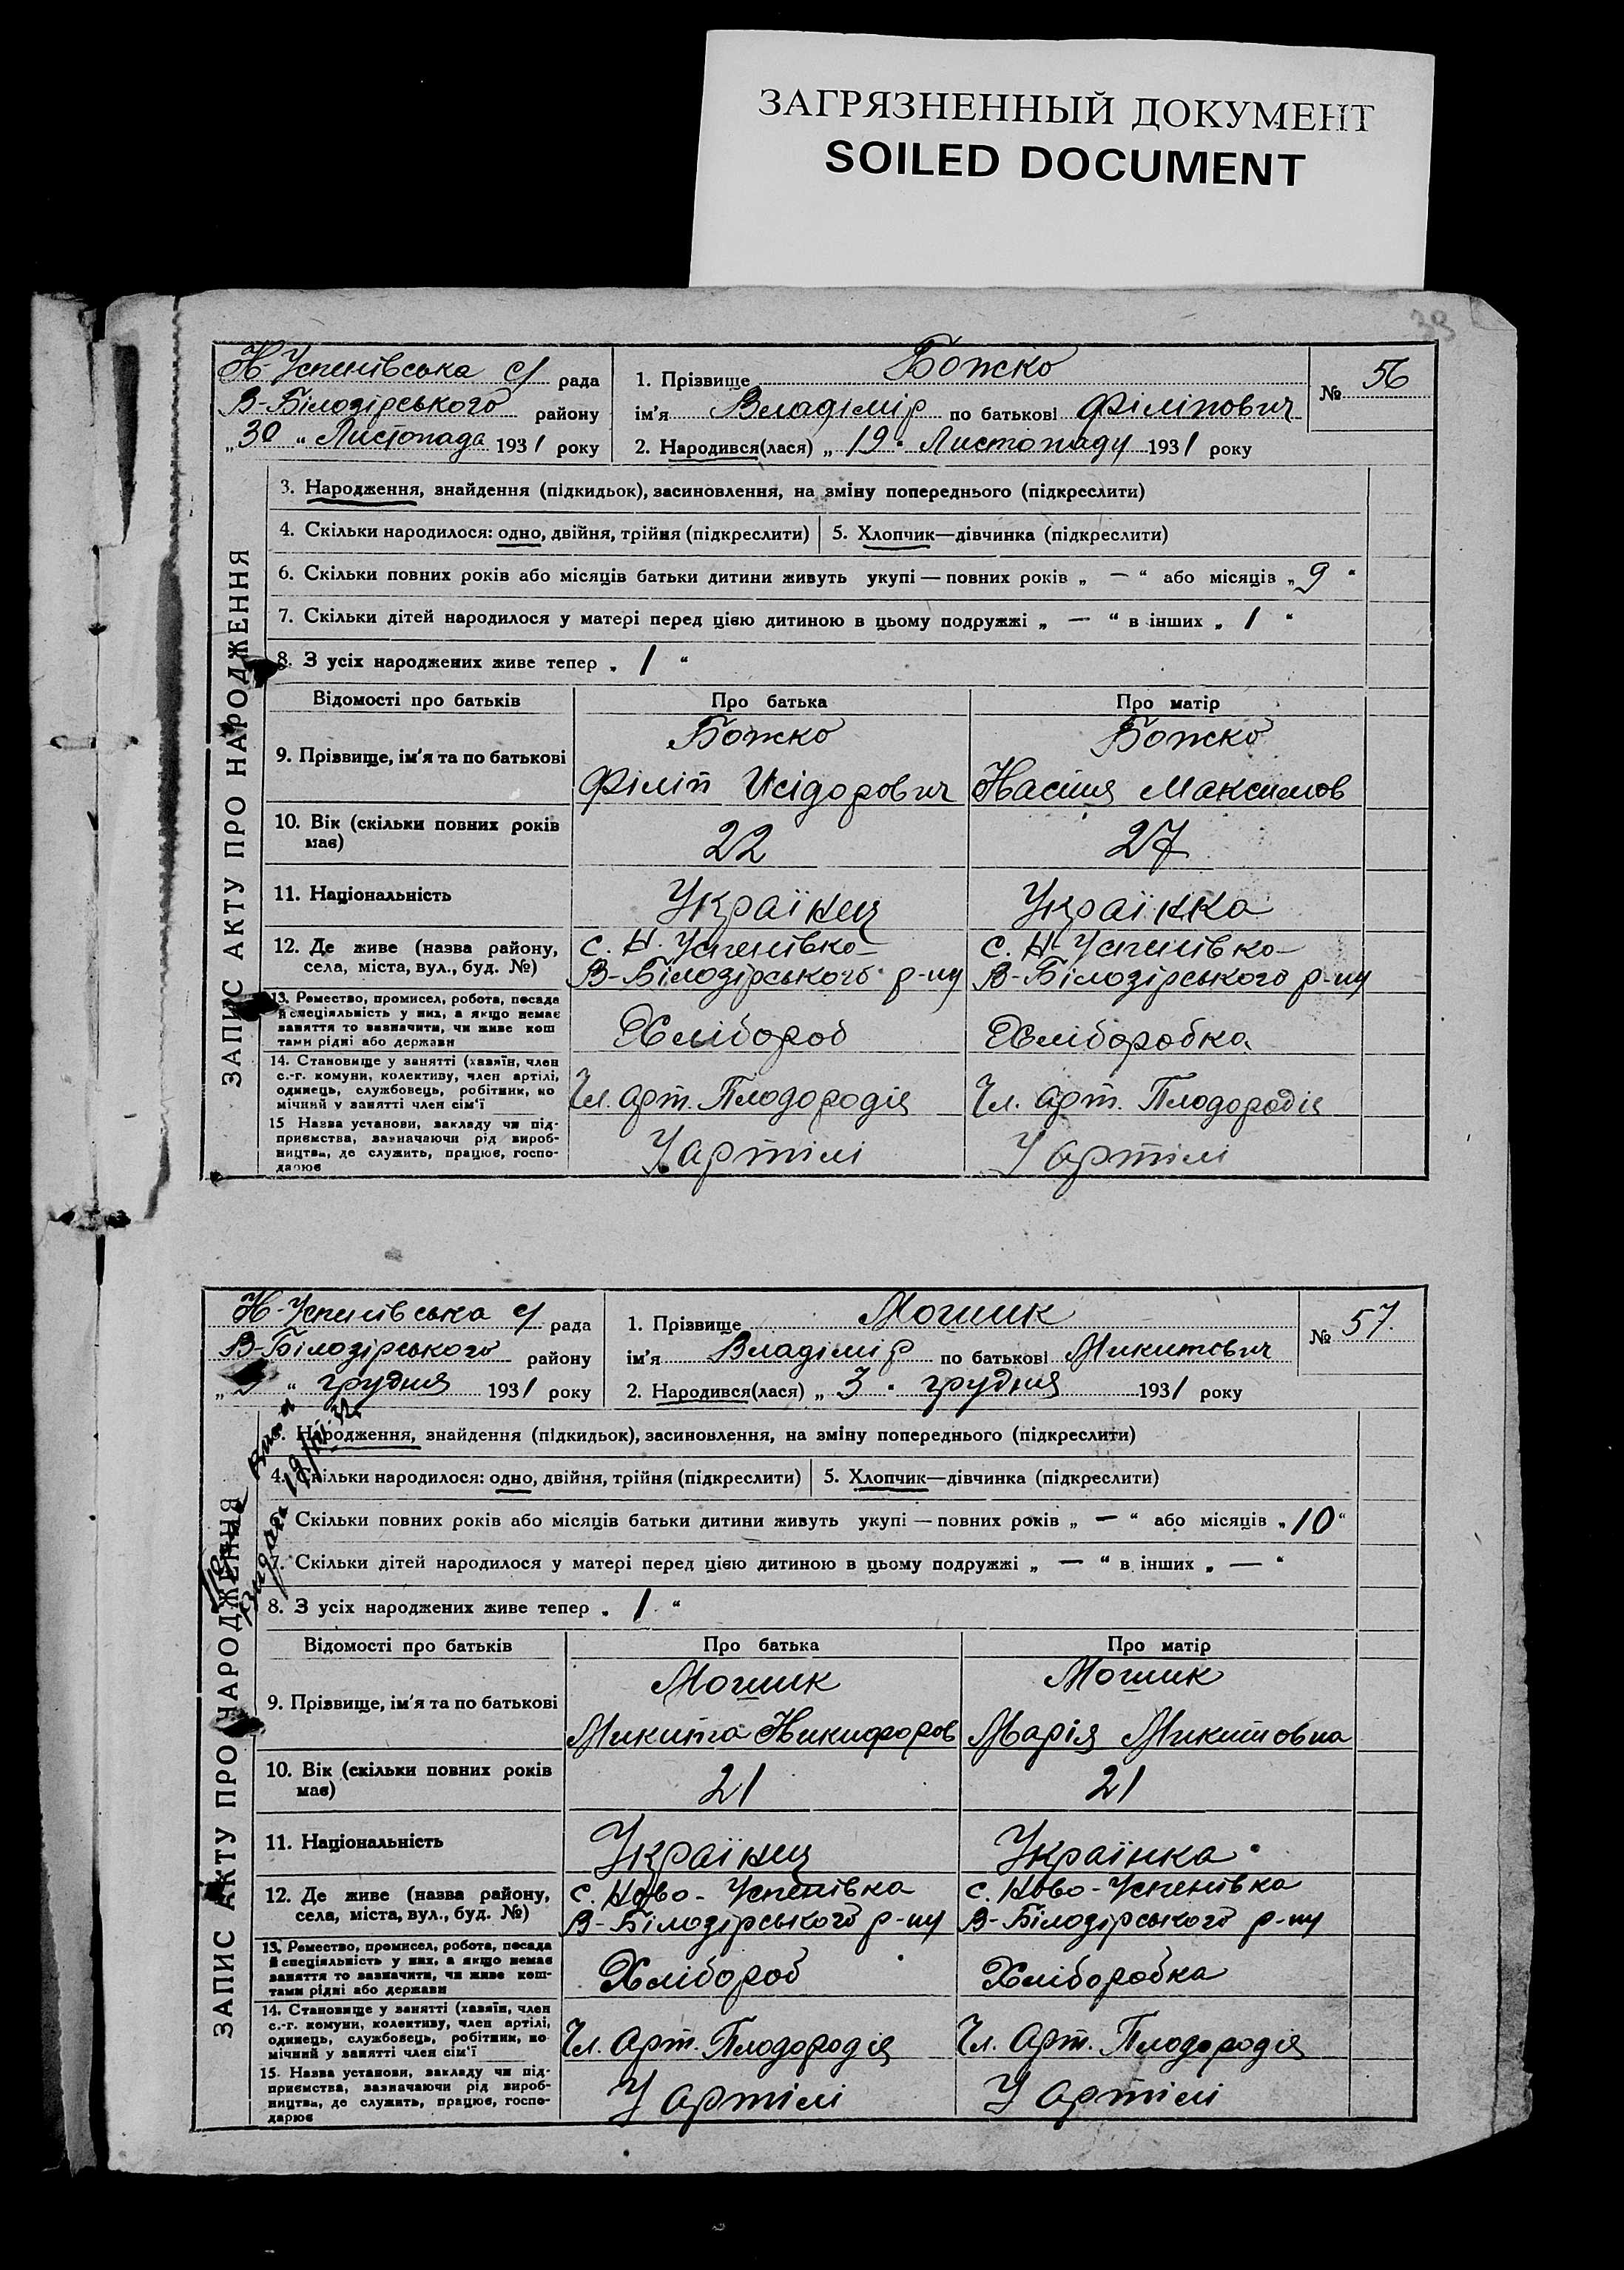 ЗАГРЯЗНЕННЫЙ ДОКУМЕНТ
SOILED DOCUMENT
39
Н-Успенівська с/ рада
В-Білозірського району
„30“ Листопада 1931 року
1. Прізвище Божко
ім'я Владімір по батькові Філіпович
2. Народився(лася) „19“ Листопаду 1931 року
№ 56
ЗАПИС АКТУ ПРО НАРОДЖЕННЯ
3. Народження, знайдення (підкидьок), засиновлення, на зміну попереднього (підкреслити)
4. Скільки народилося: одно, двійня, трійня (підкреслити) 5. Хлопчик—дівчинка (підкреслити)
6. Скільки повних років або місяців батьки дитини живуть укупі — повних років „ — “ або місяців „ 9 “
7. Скільки дітей народилося у матері перед цією дитиною в цьому подружжі „ — “ в інших „ 1 “
8. З усіх народжених живе тепер „ 1 “
Відомості про батьків Про батька Про матір
9. Прізвище, ім'я та по батькові
Божко Божко
Філіп Исідорович Настя Максимов
10. Вік (скільки повних років має) 22 27
11. Національність Українец Українка
12. Де живе (назва району,
села, міста, вул., буд. №)
с. Н-Успенівка с. Н-Успенівка
В-Білозірського р-ну В-Білозірського р-ну
13. Ремество, промисел, робота, посада
й спеціяльність у них, а якщо немає
заняття то вазначити, чи живе кош
тами рідні або держави
Хлібороб Хліборобка
14. Становище у занятті (хазяїн, член
с.-г. комуни, колективу, член артілі,
одинець, службовець, робітник, по
мічний у занятті член сім'ї
Чл. арт. Плодородія Чл. арт. Плодородія
15 Назва установи, закладу чи під-
приємства, вазначаючи рід вироб-
ництва, де служить, працює, госпо-
дарює
У артілі У артілі
Н-Успенівська с/ рада
В-Білозірського району
“ грудня 1931 року
1. Прізвище Могшик
ім'я Владімір по батькові Микитович
2. Народився(лася) „3“ грудня 1931 року
№ 57.
ЗАПИС АКТУ ПРО НАРОДЖЕННЯ
Народження, знайдення (підкидьок), засиновлення, на зміну попереднього (підкреслити)
4. Скільки народилося: одно, двійня, трійня (підкреслити) 5. Хлопчик—дівчинка (підкреслити)
Скільки повних років або місяців батьки дитини живуть укупі — повних років „ — “ або місяців „ 10 “
7. Скільки дітей народилося у матері перед цією дитиною в цьому подружжі „ — “ в інших „ — “
8. З усіх народжених живе тепер „ 1 “
Відомості про батьків Про батька Про матір
9. Прізвище, ім'я та по батькові
Могшик Могшик
Микита Никифоров Марія Микитовна
10. Вік (скільки повних років має) 21 21
11. Національність Українец Українка
12. Де живе (назва району,
села, міста, вул., буд. №)
с. Ново-Успенівка с. Ново-Успенівка
В-Білозірського р-ну В-Білозірського р-ну
13. Ремество, промисел, робота, посада
й спеціяльність у них, а якщо немає
заняття то вазначити, чи живе кош-
тами рідні або держави
Хлібороб Хліборобка
14. Становище у занятті (хазяїн, член
с.-г. комуни, колективу, член артілі,
одинець, службовець, робітник, по
мічний у занятті член сім'ї
Чл. Арт. Плодородія Чл. Арт. Плодородія
15. Назва установи, закладу чи під-
приємства, вазначаючи рід вироб-
ництва, де служить, працює, госпо-
дарює
У артілі У артілі